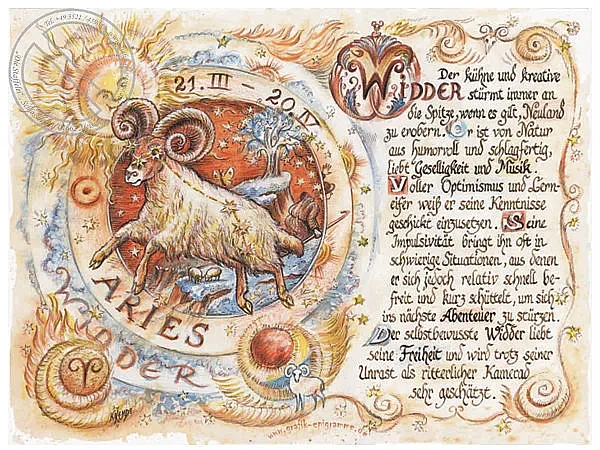 21. III - 20. IV
ARIES
WIDDER
Der kühne und kreative
WIDDER stürmt immer an
die Spitze, wenn es gilt, Neuland
zu erobern. Er ist von Natur
aus humorvoll und schlagfertig,
liebt Geselligkeit und Musik.
Voller Optimismus und Lern-
eifer weiß er seine Kenntnisse
geschickt einzusetzen. Seine
Impulsivität bringt ihn oft in
schwierige Situationen, aus denen
er sich jedoch relativ schnell be-
freit und kurz schüttelt, um sich
ins nächste Abenteuer zu stürzen.
Der selbstbewusste Widder liebt
seine Freiheit und wird trotz seiner
Unrast als ritterlicher Kamerad
sehr geschätzt.
www.grafik-epigramme.de